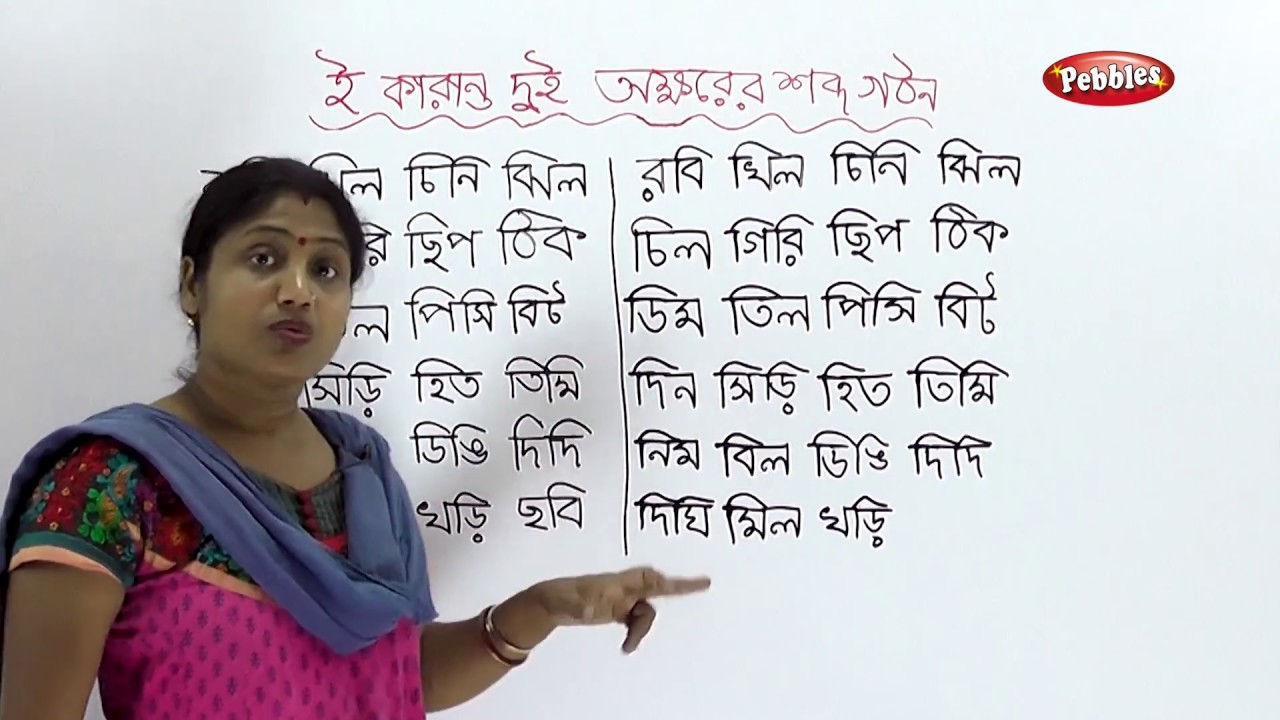 ই কারান্ত দুই অক্ষরের শব্দ গঠন
Pebbles
চিনি ঝিল
ছিপ ঠিক
পিসি বিট
সিঁড়ি হিত তিমি
ডিঙি দিদি
খড়ি ছবি
রবি খিল চিনি ঝিল
চিল গিরি ছিপ ঠিক
ডিম তিল পিসি বিট
দিন সিঁড়ি হিত তিমি
নিম বিল ডিঙি দিদি
দিঘি মিল খড়ি